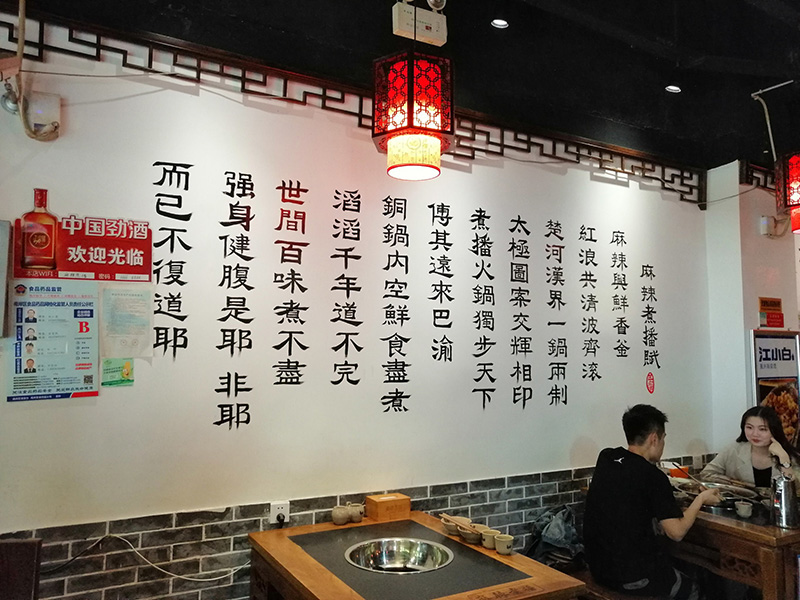 麻辣煮播賦
麻辣與鮮香釜
紅浪共清波齊滾
楚河漢界一鍋兩制
太極圖案交輝相印
煮播火鍋獨步天下
傳其遠來巴渝
銅鍋內空鮮食盡煮
滔滔千年道不完
世間百味煮不盡
强身健腹是耶 非耶
而已不復道耶
中国劲酒
欢迎光临
本店WIFI
密码
食品药品监管
B
江小白